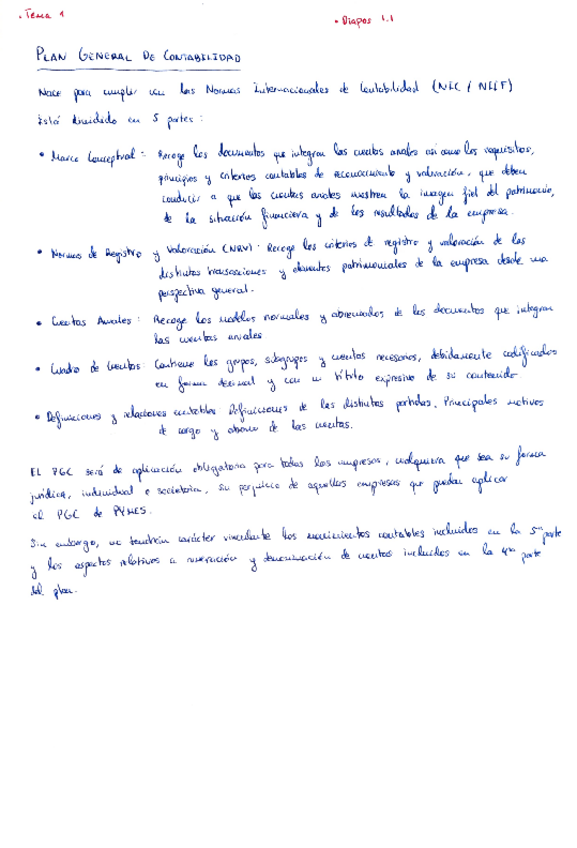 . Tema 1
• Diapos 1.1
PLAN GENERAL DE CONTABILIDAD
Nace para cumplir con las Normas Internacionales de Contabilidad (NIC / NIIF)
Está dividido en 5 partes :
• Marco Conceptual : Recoge los documentos que integran las cuentas anales asi como los requisitos,
principios y criterios contables de reconocimiento y valoración, que deben
conducir a que las cuentas anales muestren la imagen fiel del patrimonio,
de la situación financiera y de los resultados de la empresa.
• Normas de Registro y Valoración (NRV) : Recoge los criterios de registro y valoración de las
distintas transacciones y elementos patrimoniales de la empresa desde una
perspectiva general.
• Cuentas Anuales : Recoge los modelos normales y abreviados de los documentos que integran
las cuentas anuales
• Cuadro de Cuentas : Contiene los grupos, subgrupos y cuentas necesarios, debidamente codificados
en forma decimal y con un título expresivo de su contenido
• Definiciones y relaciones contables Definiciones de las distintas partidas. Principales motivos
de cargo y abono de las cuentas.
EL PGC será de aplicación obligatoria para todas las empresas, cualquiera que sea su forma
jurídica, individual o societaria, sin perjuicio de aquellas empresas que puedan aplicar
el PGC de PYMES.
Sin embargo, no tendrán carácter vinculante los movimientos contables incluidos en la 5ª parte
y los aspectos relativos a numeración y denominación de cuentas incluidos en la 4ª parte
del plan.